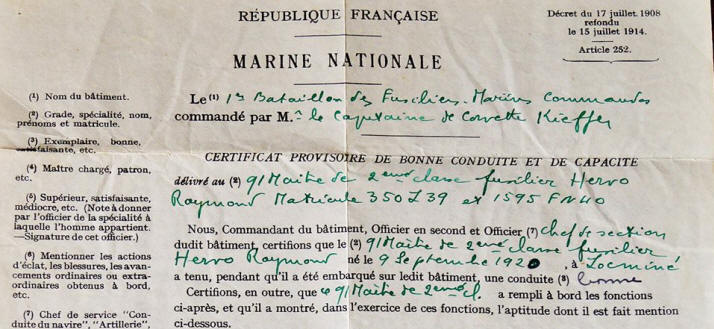 RÉPUBLIQUE FRANÇAISE
Décret du 17 juillet 1908
refondu
le 15 juillet 1914.
Article 252.
MARINE NATIONALE
(1) Nom du bâtiment.
(2) Grade, spécialité, nom,
prénoms et matricule.
(3) Exemplaire, bonne,
satisfaisante, etc.
(4) Maître chargé, patron,
etc.
(5) Supérieur, satisfaisante,
médiocre, etc. (Note à donner
par l'officier de la spécialité à
laquelle l'homme appartient.
—Signature de cet officier.)
(6) Mentionner les actions
d'éclat, les blessures, les avan-
cements ordinaires ou extra-
ordinaires obtenus à bord,
etc.
(7) Chef de service "Con-
duite du navire", "Artillerie",
Le (1) 1er Bataillon des Fusiliers. Marins Commandos
commandé par M.r le Capitaine de Corvette Kieffer
CERTIFICAT PROVISOIRE DE BONNE CONDUITE ET DE CAPACITE
délivré au (2) q/Maitre de 2eme classe fusilier Hervo
Raymond Matricule 350 L39 ex 1595 FN40
Nous, Commandant du bâtiment, Officier en second et Officier (7) Chef de section
dudit bâtiment, certifions que le (2) q/Maitre de 2eme classe fusilier
Hervo Raymond né le 9 Septembre 1920, à Locminé
a tenu, pendant qu'il a été embarqué sur ledit bâtiment, une conduite (3) bonne
Certifions, en outre, que le q/Maitre de 2eme cl. a rempli à bord les fonctions
ci-après, et qu'il a montré, dans l'exercice de ces fonctions, l'aptitude dont il est fait mention
ci-dessous.